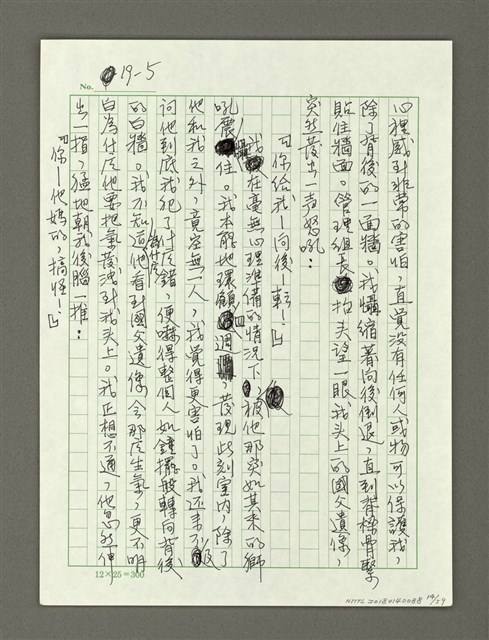 19-5
No.
心裡感到非常的害怕，直覺沒有任何人或物可以保護我，
除了背後的一面牆。我懾縮著向後倒退，直到背樑骨緊
貼住牆面。管理組長抬頭望一眼我頭上的國父遺像，
突然發出一聲怒吼：
『你給我！向後！轉！』
我在毫無心理準備的情況下，被他那突如其來的獅
吼震懾住。我本能地環顧四週，發現此刻室內，除了
他和我之外，竟空無一人，我覺得更害怕了。我還來不及
詞他到底我犯了什麼錯，便嚇得整個人如鐘擺般轉向背後
的白牆。我不知道他看到國父遺像為什麼會那麼生氣，更不明
白為什麼他要把氣發洩到我頭上。我正想不通，他忽然伸
出一指，猛地朝我後腦一推：
『你！他媽的，搞怪！』
12×25=300
NMTL20180140088 14/29